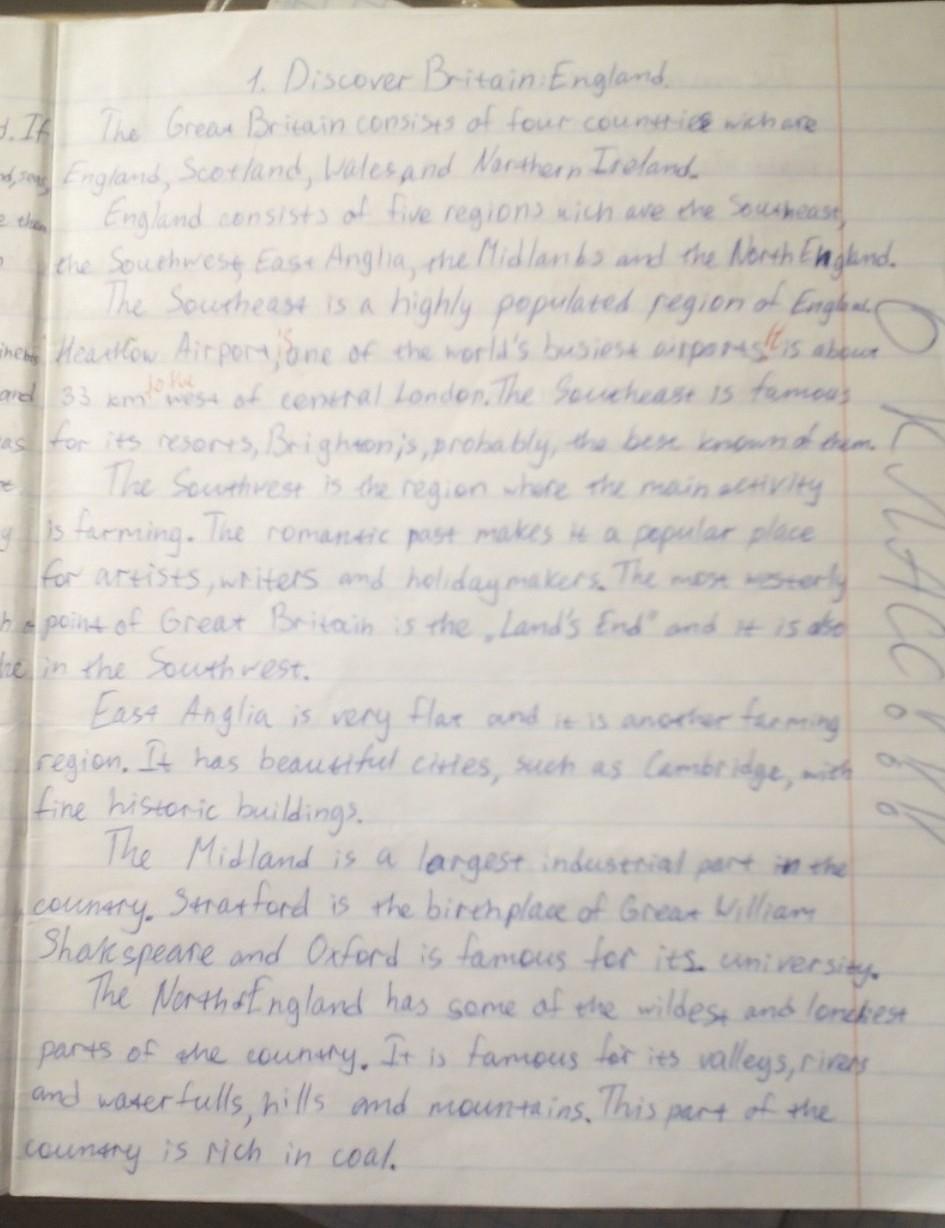 1. Discover Britain: England.
The Great Britain consists of four countries wich are
England, Scotland, Wales, and Northern Ireland.
England consists of five regions wich are the Southeast,
the Southwest, East Anglia, the Midlands and the North England.
The Southeast is a highly populated region of England.
Heathlow Airport, is one of the world's busiest airports. It is about
33 km to the west of central London. The Southeast is famous
for its resorts, Brighton is, probably, the best known of them.
The Southwest is the region where the main activity
is farming. The romantic past makes it a popular place
for artists, writers and holidaymakers. The most westerly
point of Great Britain is the „Land's End" and it is also
in the Southwest.
East Anglia is very flat and it is another farming
region. It has beautiful cities, such as Cambridge, with
fine historic buildings.
The Midland is a largest industrial part in the
country. Stratford is the birthplace of Great William
Shakspeare and Oxford is famous for its university.
The North of England has some of the wildest and loneliest
parts of the country. It is famous for its valleys, rivers
and waterfulls, hills and mountains. This part of the
country is rich in coal.
If
and
as
6 клас